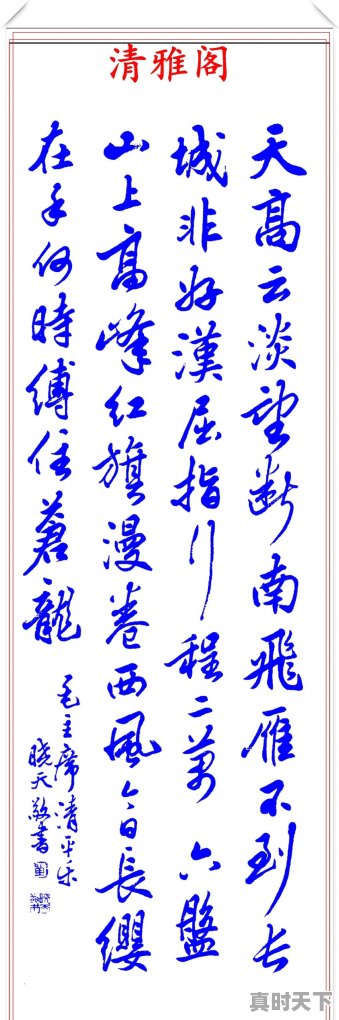 清雅阁
天高云淡望断南飛雁不到长
城非好漢屈指行程二萬 六盤
山上高峰红旗漫卷西風今日長纓
在手何時缚住蒼龍
毛主席清平乐
晓天敬書
真时天下